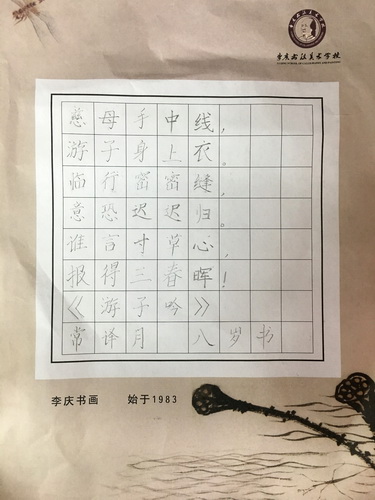 李庆书法美术学校
慈母手中线，
游子身上衣。
临行密密缝，
意恐迟迟归。
谁言寸草心，
报得三春晖！
《游子吟》
常译月 八岁书
李庆书画 始于1983